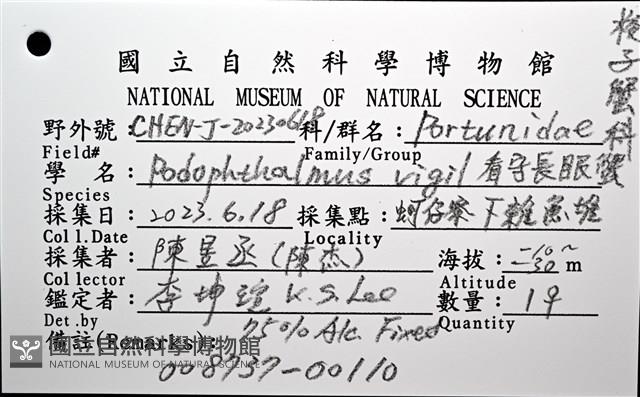 國立自然科學博物館
NATIONAL MUSEUM OF NATURAL SCIENCE
野外號:CHEN-J-20230618 科/群名:Portunidae 梭子蟹科
Field# Family/Group
學 名:Podophthalmus vigil 看守長眼蟹
Species
採集日:2023.6.18 採集點:蚵仔寮下雜魚堆
Col l.Date Locality
採集者:陳昱丞(陳杰) 海拔:-10~-30 m
Col lector Altitude
鑑定者:李坤瑄 K.S.Lee 數量:1♀
Det .by Quantity
備註(Remarks): 75% Alc. Fixed
008737-00110
國立自然科學博物館
NATIONAL MUSEUM OF NATURAL SCIENCE